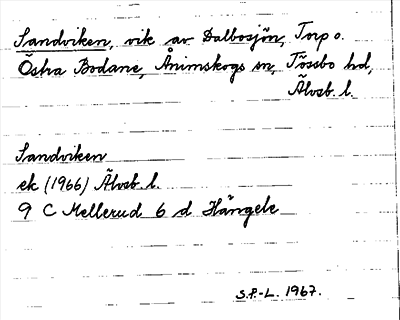 Sandviken, vik av Dalbosjön, Torp o.
Östra Bodane, Ånimskogs sn, Tössbo hd,
Älvsb. l.
Sandviken
ek (1966) Älvsb. l.
9 C Mellerud 6 d Hängele
S.P.-L. 1967.